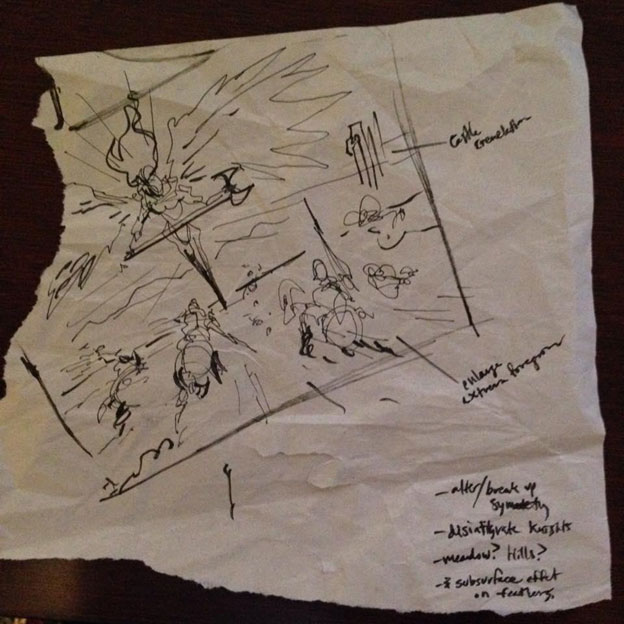 castle
crenelation
enlarge
extreme foreground
- alter/break up
symmetry
- disintegrate knights
- meadow? Hills?
- subsurface effect
on feathers.